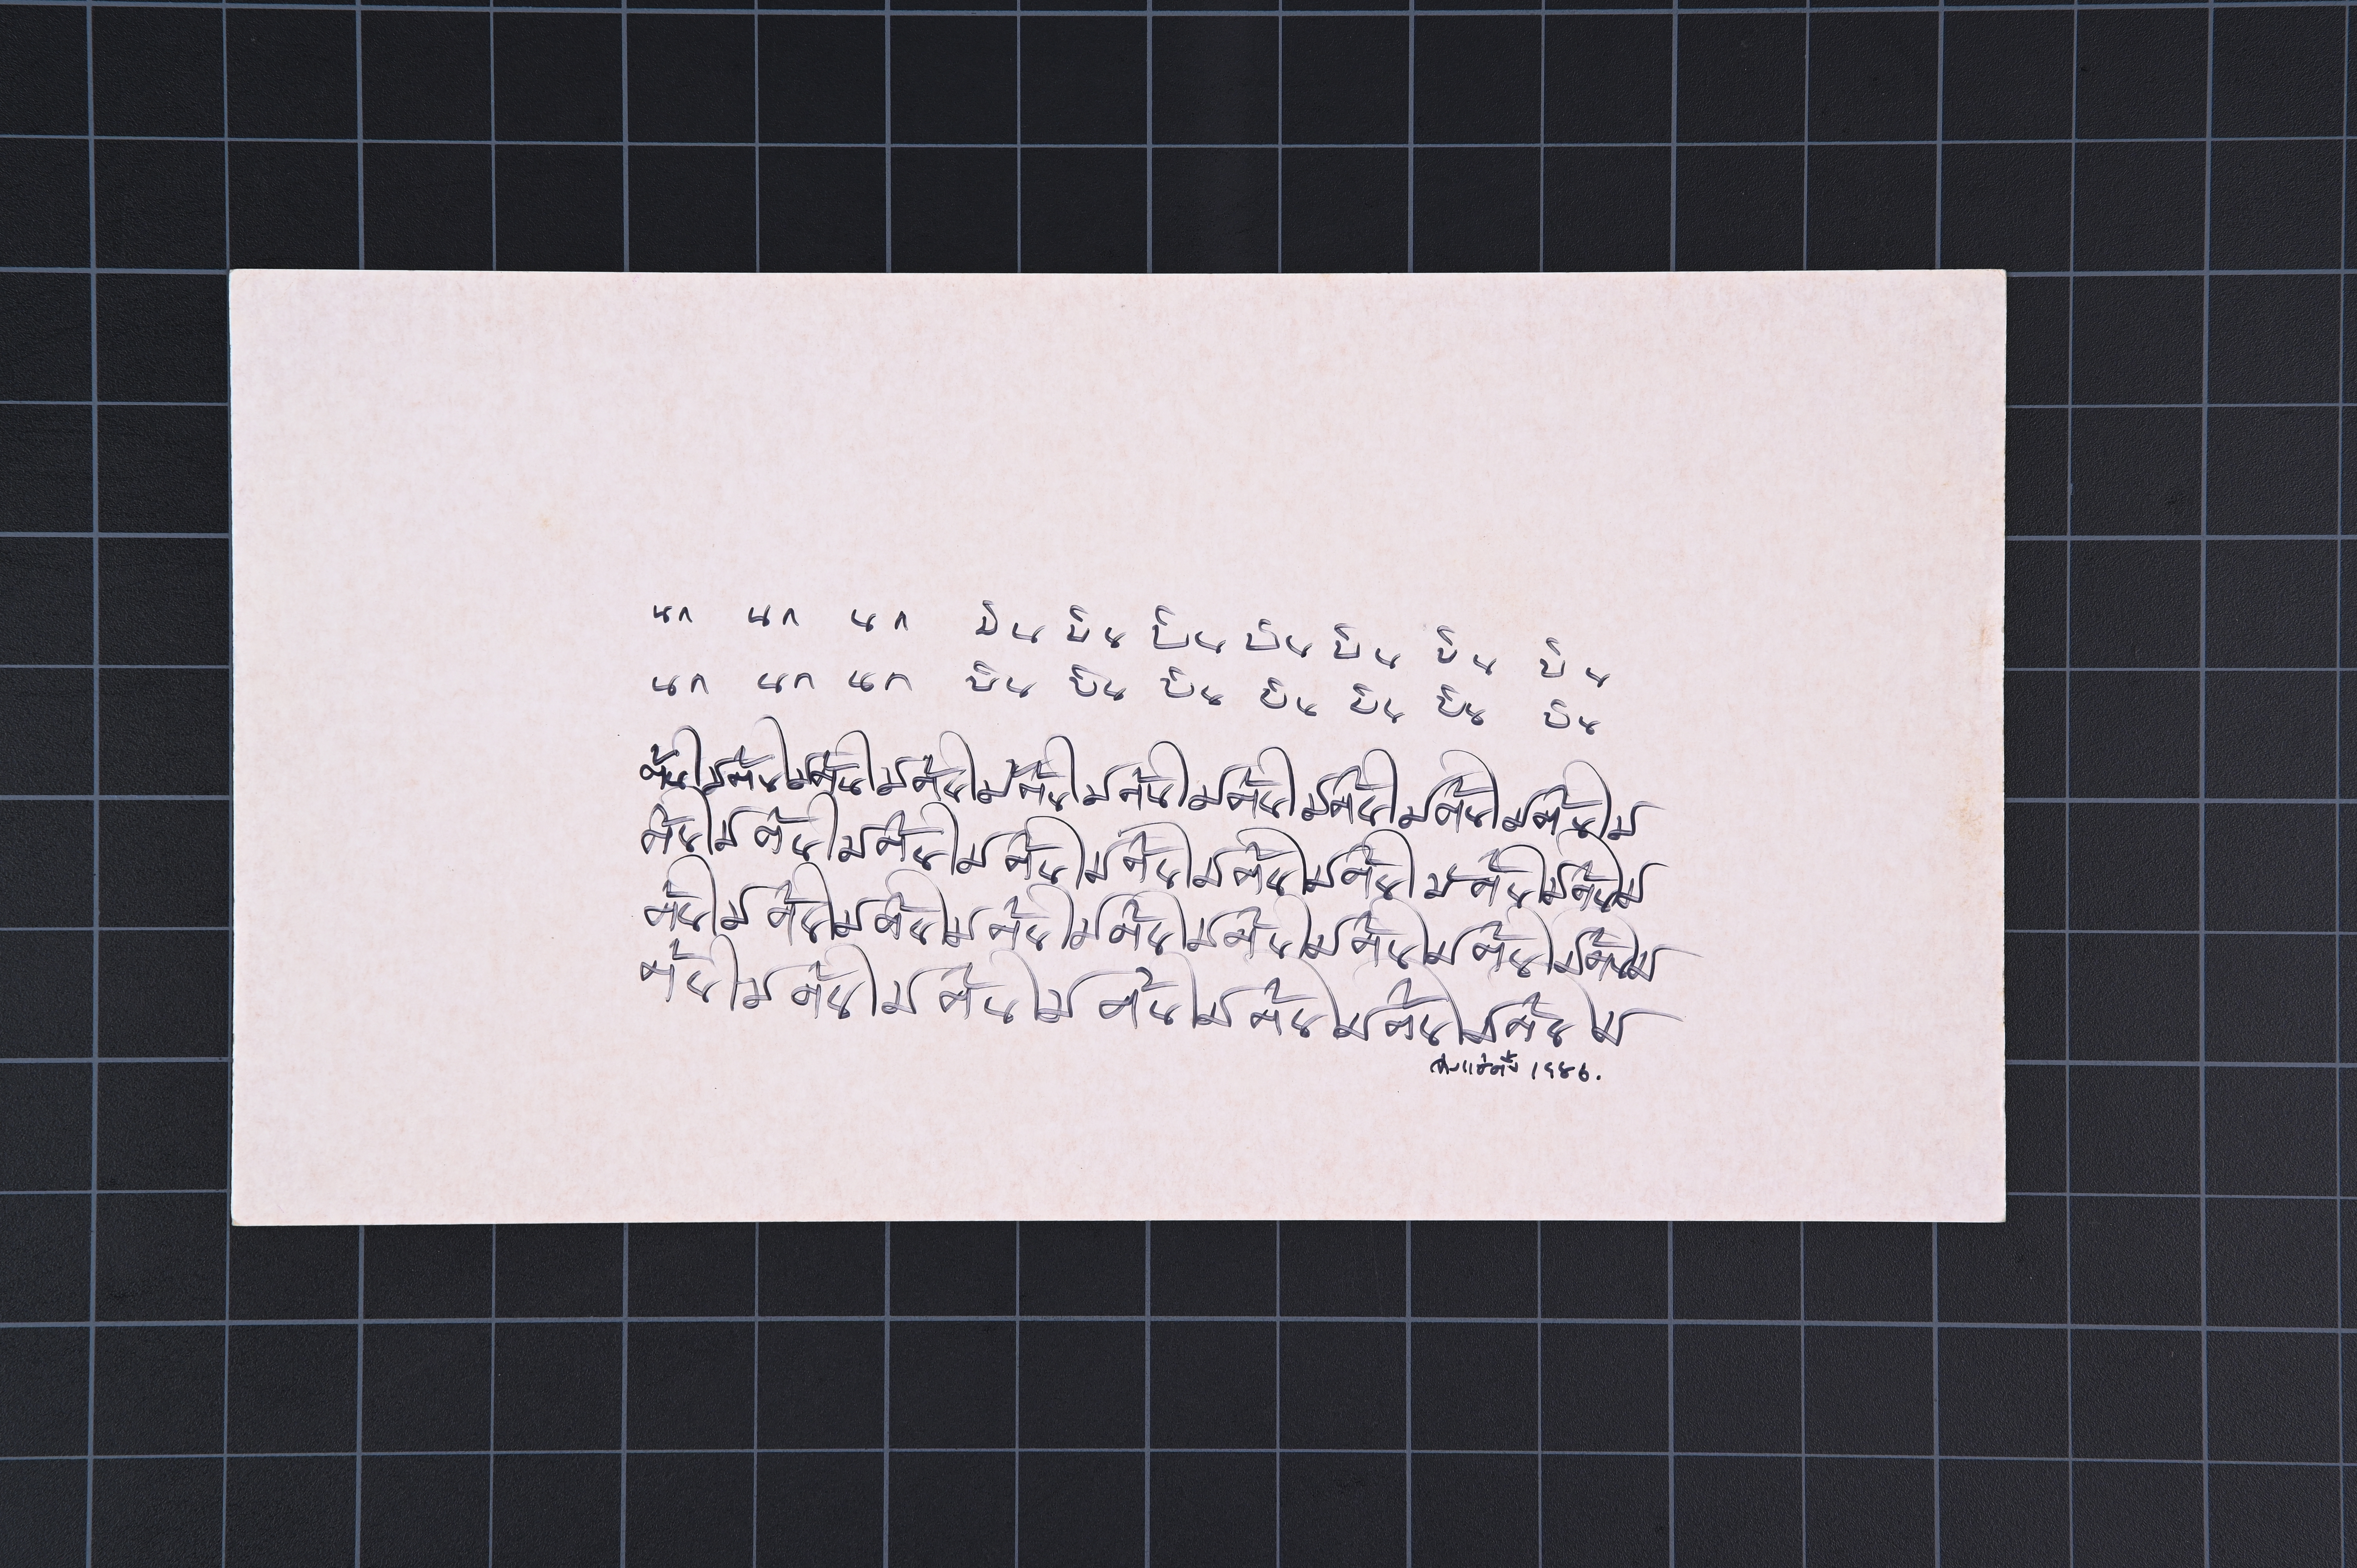 นก นก นก บิน บิน บิน บิน บิน บิน บิน
นก นก นก บิน บิน บิน บิน บิน บิน บิน
ต้นไม้ต้นไม้ต้นไม้ต้นไม้ต้นไม้ต้นไม้ต้นไม้ต้นไม้ต้นไม้ต้นไม้
ต้นไม้ต้นไม้ต้นไม้ต้นไม้ต้นไม้ต้นไม้ต้นไม้ต้นไม้ต้นไม้
ต้นไม้ต้นไม้ต้นไม้ต้นไม้ต้นไม้ต้นไม้ต้นไม้ต้นไม้ต้นไม้
ต้นไม้ต้นไม้ต้นไม้ต้นไม้ต้นไม้ต้นไม้ต้นไม้
จ่างแซ่ตั้ง 1986.